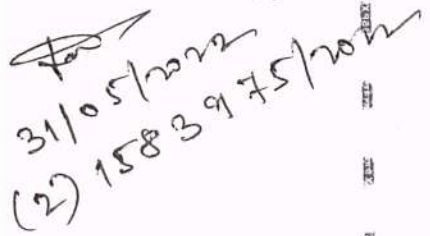 31/05/2022
(2) 1583975/2022